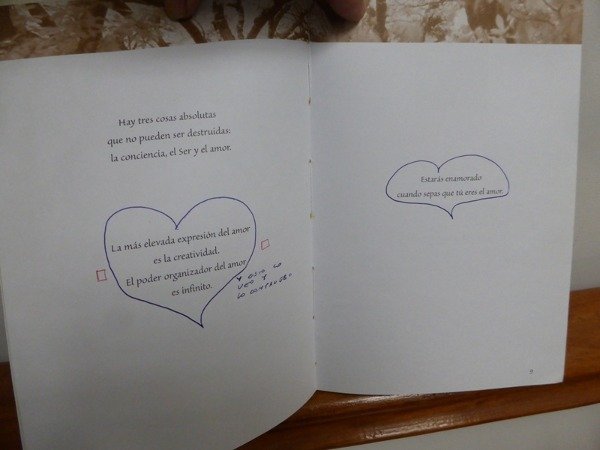 Hay tres cosas absolutas
que no pueden ser destruidas:
la conciencia, el Ser y el amor.
La más elevada expresión del amor
es la creatividad.
El poder organizador del amor
es infinito.
Y
LO
VEO Y
LO
Estarás enamorado
cuando sepas que tú eres el amor.
9